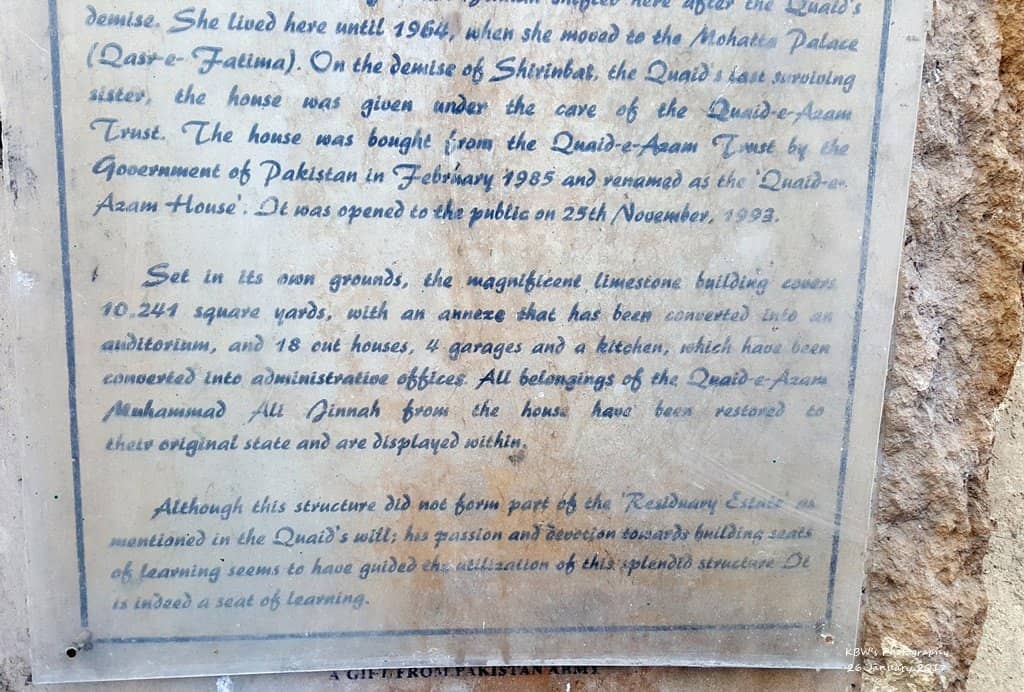 shifted here after the Quaid's
demise. She lived here until 1964, when she moved to the Mohatta Palace
(Qasr-e- Fatima). On the demise of Shirinbai, the Quaid's last surviving
sister, the house was given under the care of the Quaid-e-Azam
Trust. The house was bought from the Quaid-e-Azam Trust by the
Government of Pakistan in February 1985 and renamed as the 'Quaid-e-
Azam House'. It was opened to the public on 25th November, 1993.
Set in its own grounds, the magnificent limestone building covers
10.241 square yards, with an annexe that has been converted into an
auditorium, and 18 out houses, 4 garages and a kitchen, which have been
converted into administrative offices. All belongings of the Quaid-e-Azam
Muhammad Ali Jinnah from the house have been restored to
their original state and are displayed within.
Although this structure did not form part of the 'Residuary Estate' as
mentioned in the Quaid's will; his passion and devotion towards building seats
of learning seems to have guided the utilization of this splendid structure It
is indeed a seat of learning.
A GIFT FROM PAKISTAN ARMY
KBW's Photography
26 January 2017